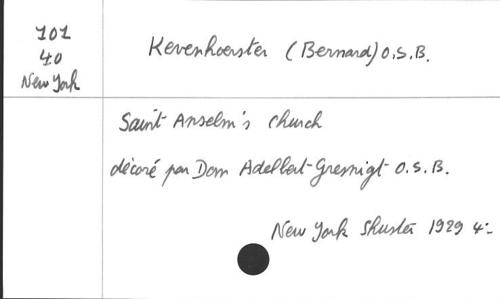 101
40
New York
Kevenhoerster (Bernard) O.S.B.
Saint Anselm's church
décoré par Dom Adelbert Gresnigt O.S.B.
New York Shuster 1929 4:-